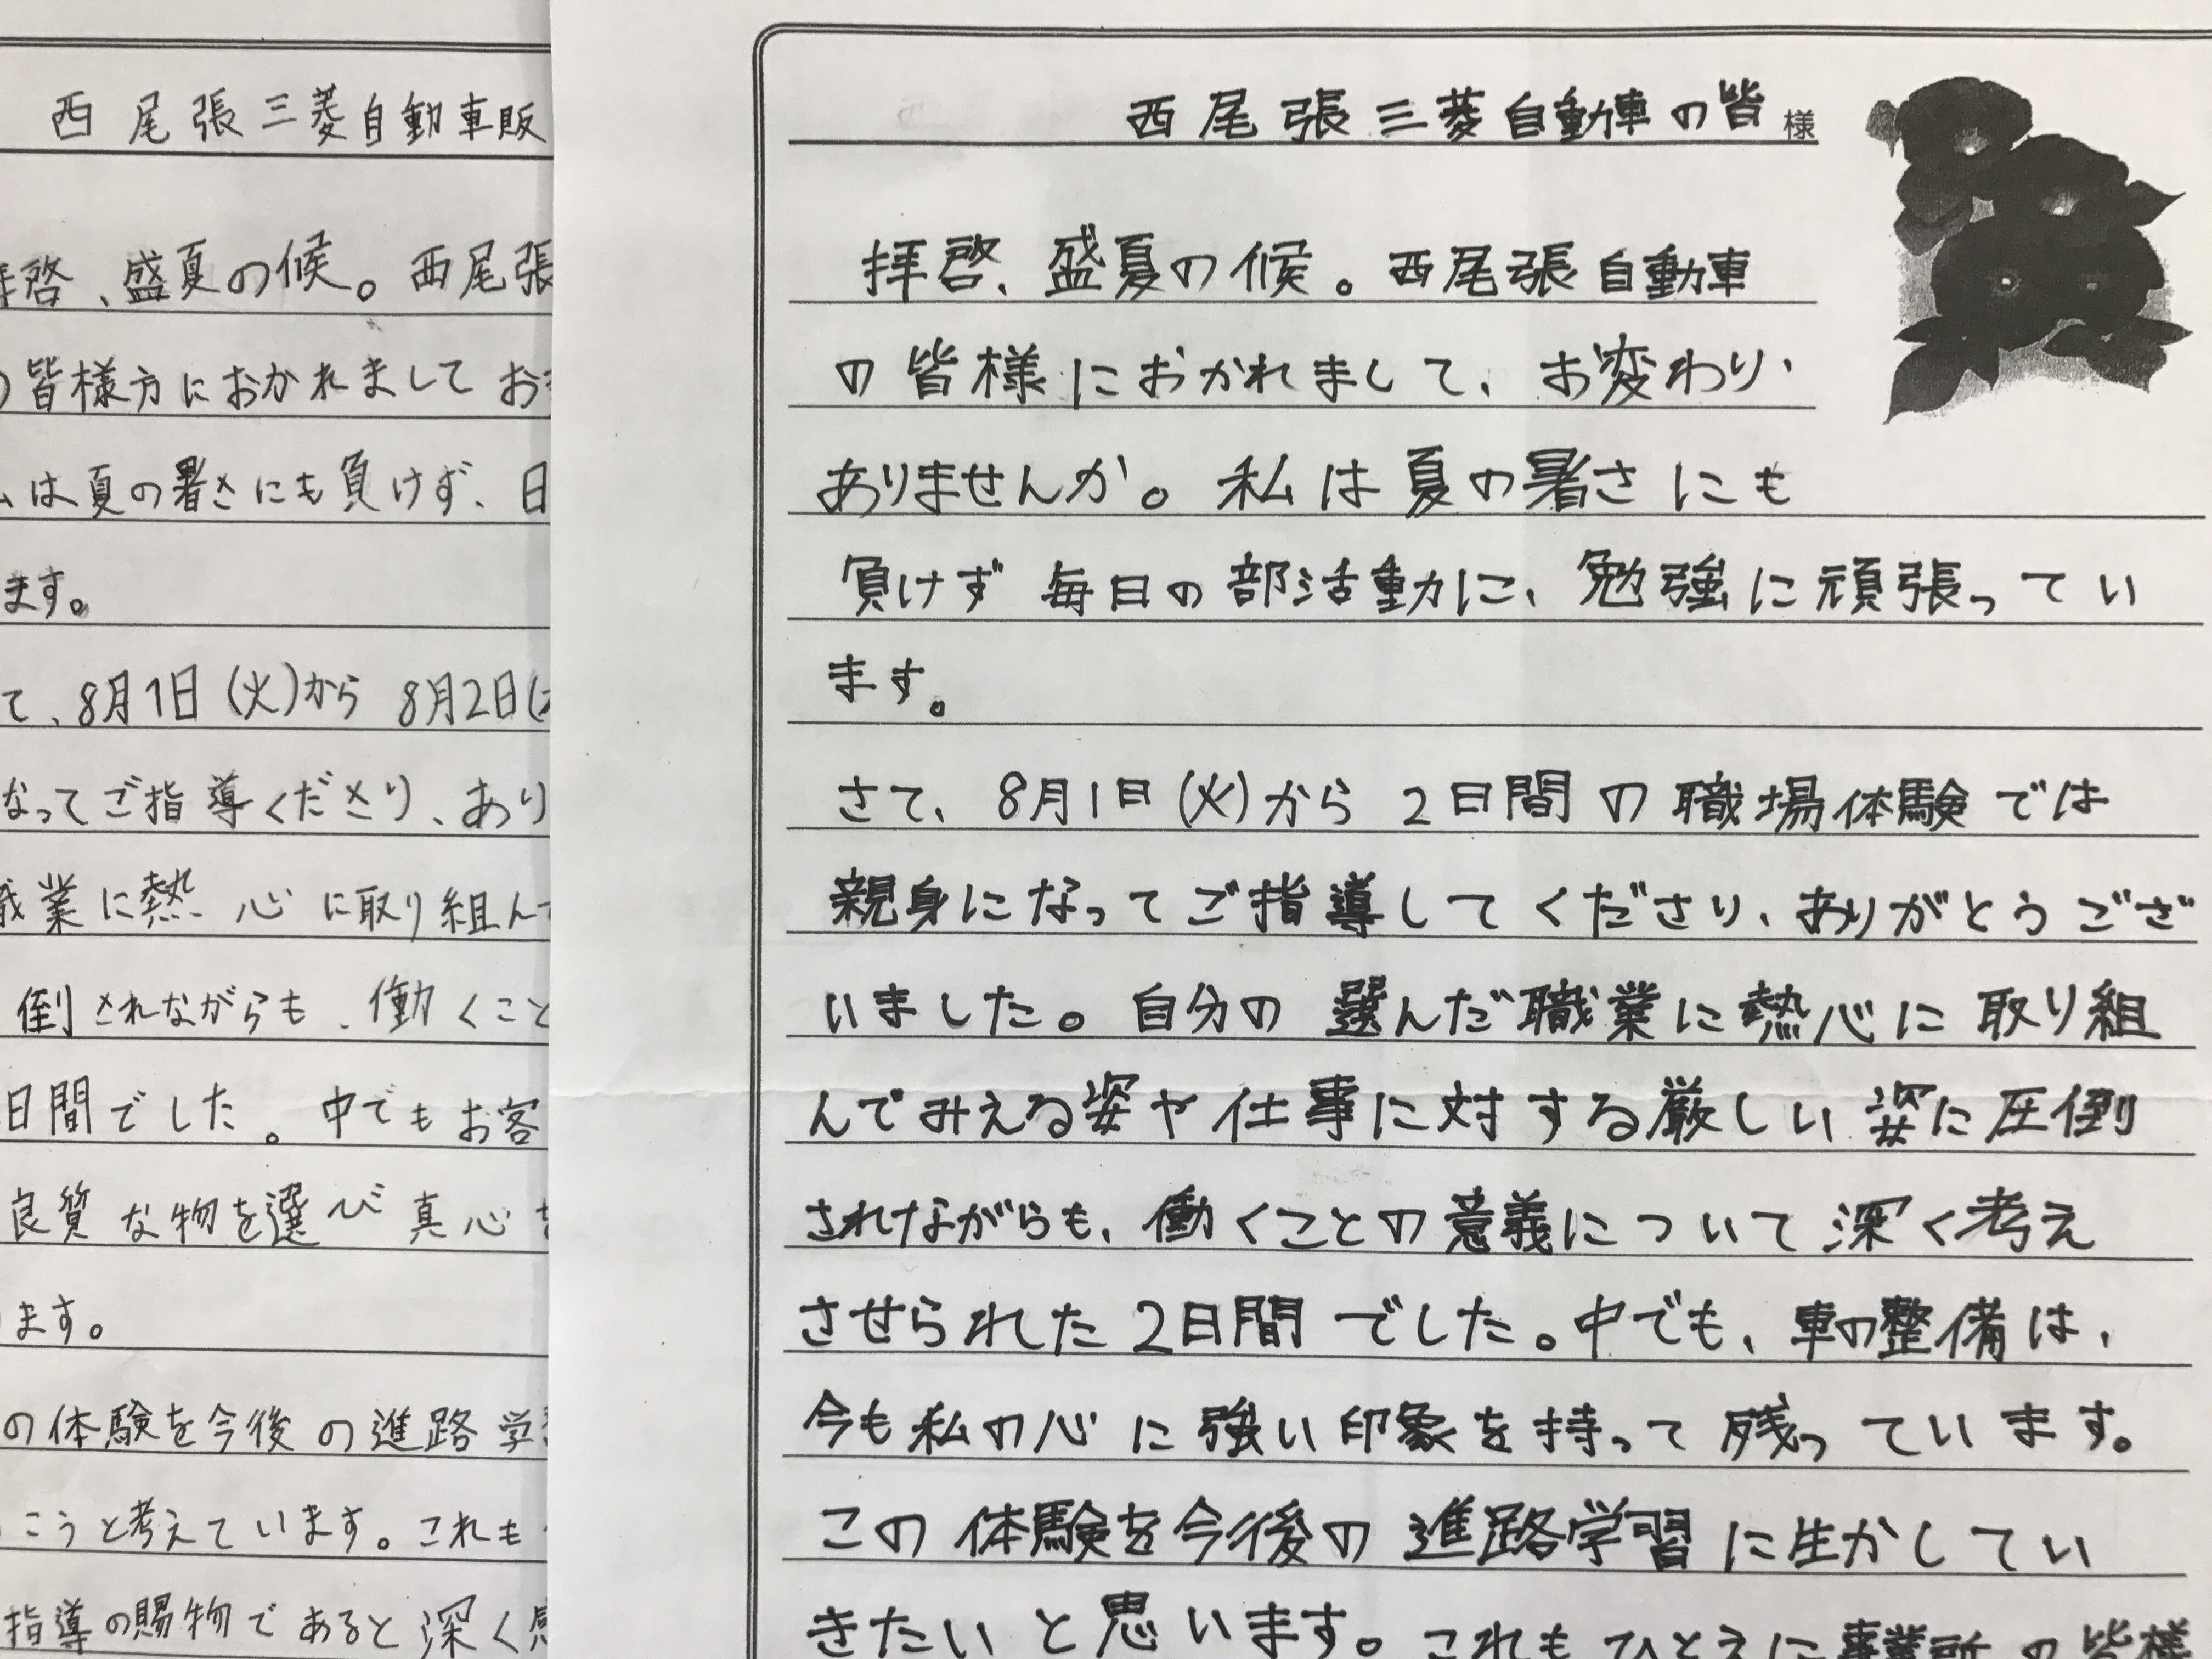 西尾張三菱自動車販
拝啓、盛夏の候。西尾張
の皆様方におかれまして お
は夏の暑さにも負けず、日
ます。
て、8月1日(火)から 8月2日(
なってご指導くださり、あり
職業に熱心に取り組んで
倒されながらも、働くこと
日間でした。中でもお客
良質な物を選び真心を
ます。
の体験を今後の進路学
こうと考えています。これも
指導の賜物であると深く感
西尾張三菱自動車の皆様
拝啓、盛夏の候。西尾張自動車
の皆様におかれまして、お変わり
ありませんか。私は夏の暑さにも
負けず毎日の部活動に、勉強に頑張ってい
ます。
さて、8月1日(火)から2日間の職場体験では
親身になってご指導してくださり、ありがとうござ
いました。自分の選んだ職業に熱心に取り組
んでみえる姿や仕事に対する厳しい姿に圧倒
されながらも、働くことの意義について深く考え
させられた2日間でした。中でも、車の整備は、
今も私の心に強い印象を持って残っています。
この体験を今後の進路学習に生かしてい
きたいと思います。これもひとえに事業所の皆様